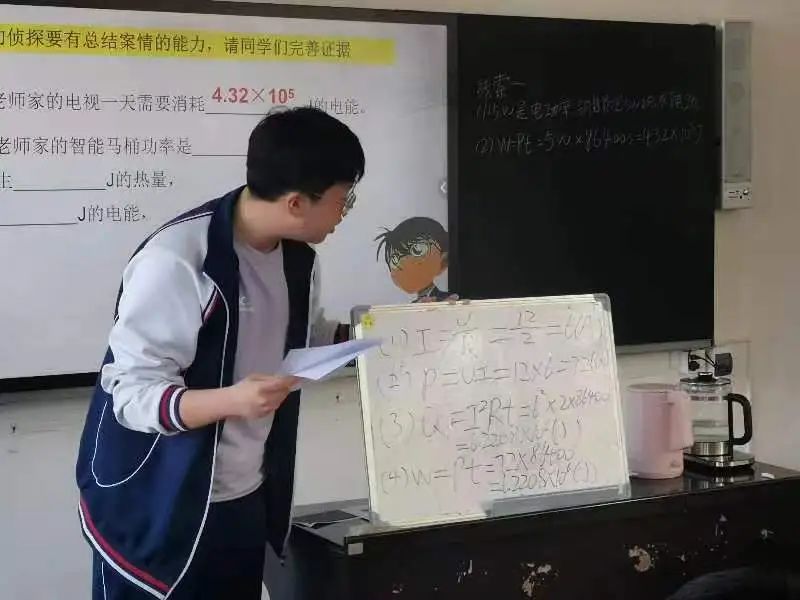 的侦探要有总结案情的能力，请同学们完善证据
老师家的电视一天需要消耗 4.32×10⁵ J的电能。
老师家的智能马桶功率是
生 J的热量，
J的电能，
线索一
(2) W=Pt=5W×86400s=4.32×10⁵J
(1) I=U/R=12/2=6(A)
(2) P=UI=12×6=72(W)
(3) Q=I²Rt=6²×2×86400
=6.2208×10⁶(J)
(4) W=Pt=72×86400
=6.2208×10⁶(J)